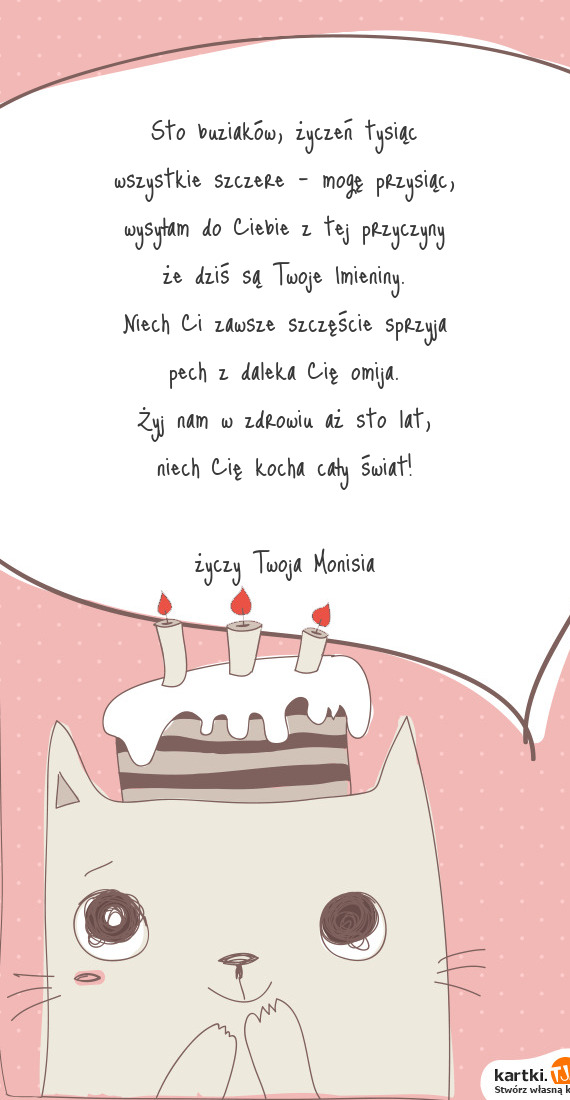 Sto buziaków, życzeń tysiąc
wszystkie szczere - mogę przysiąc,
wysyłam do Ciebie z tej przyczyny
że dziś są Twoje Imieniny.
Niech Ci zawsze szczęście sprzyja
pech z daleka Cię omija.
Żyj nam w zdrowiu aż sto lat,
niech Cię kocha cały świat!
życzy Twoja Monisia
kartki.TJ
Stwórz własną k